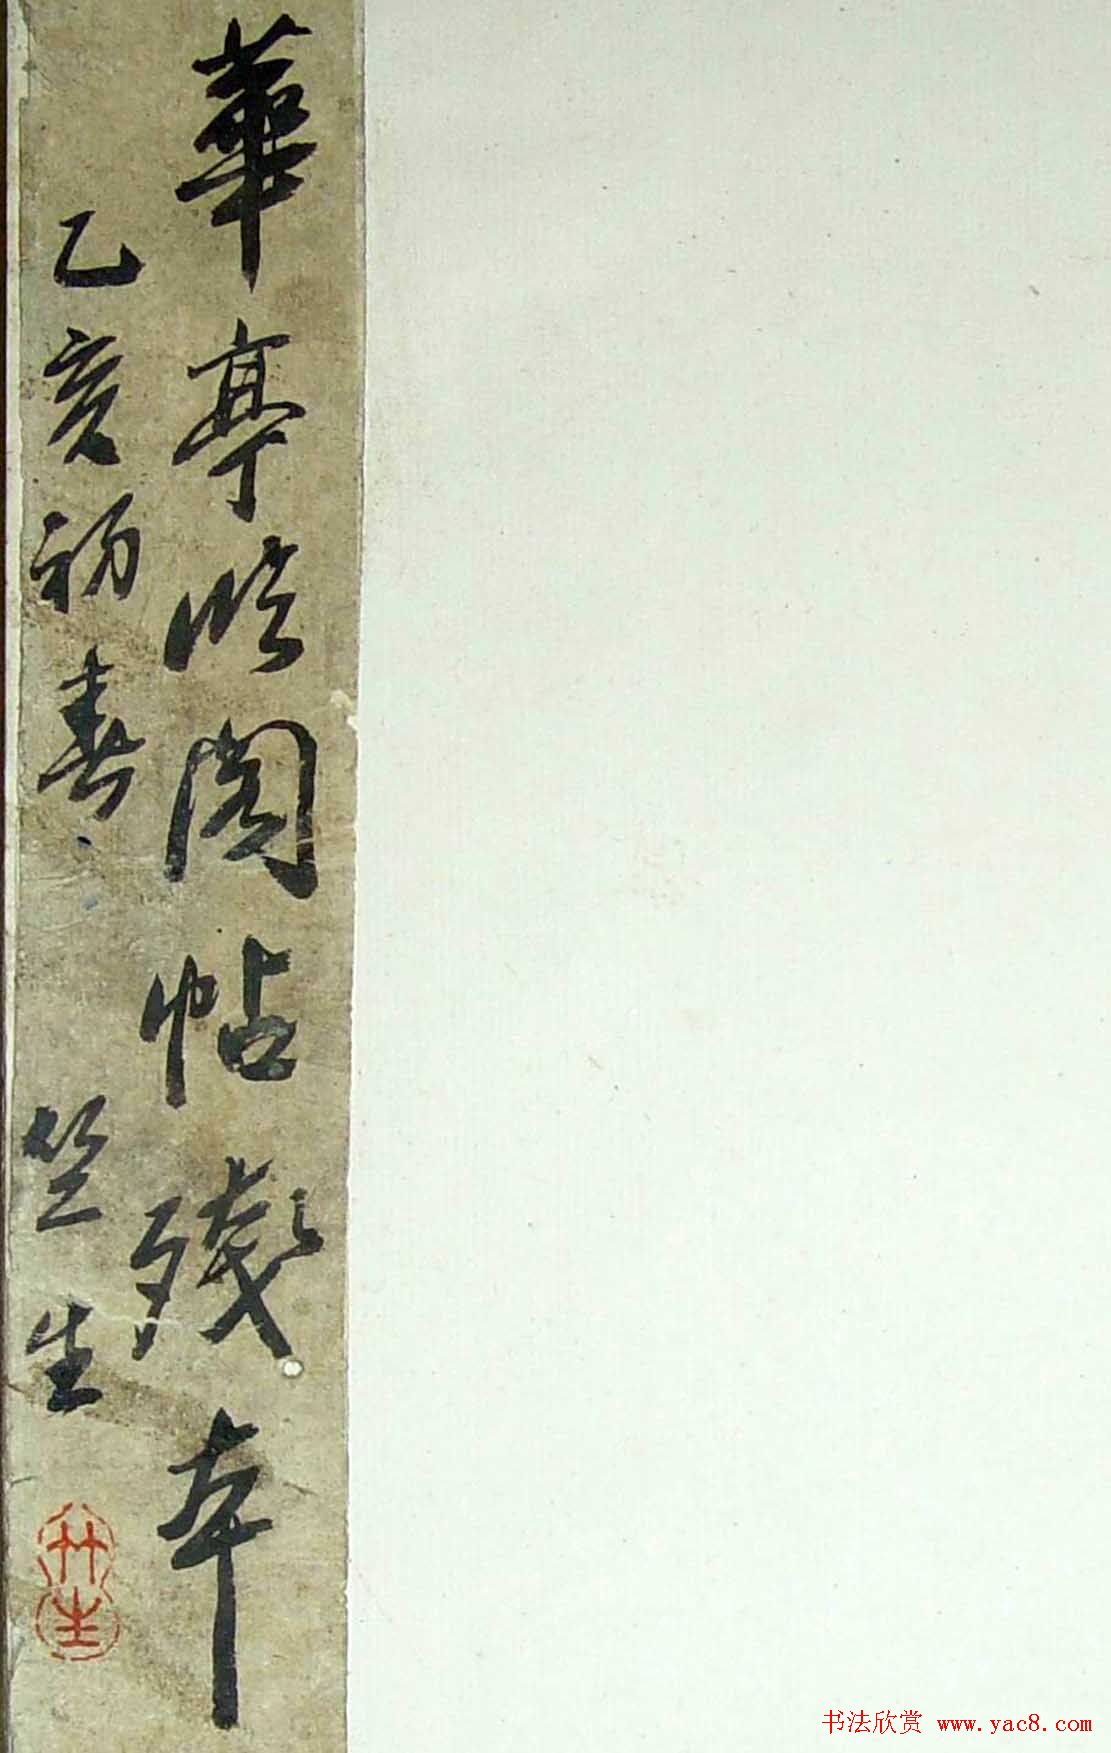 華亭临阁帖殘本
乙亥初春
竺生
竹生
书法欣赏 www.yac8.com